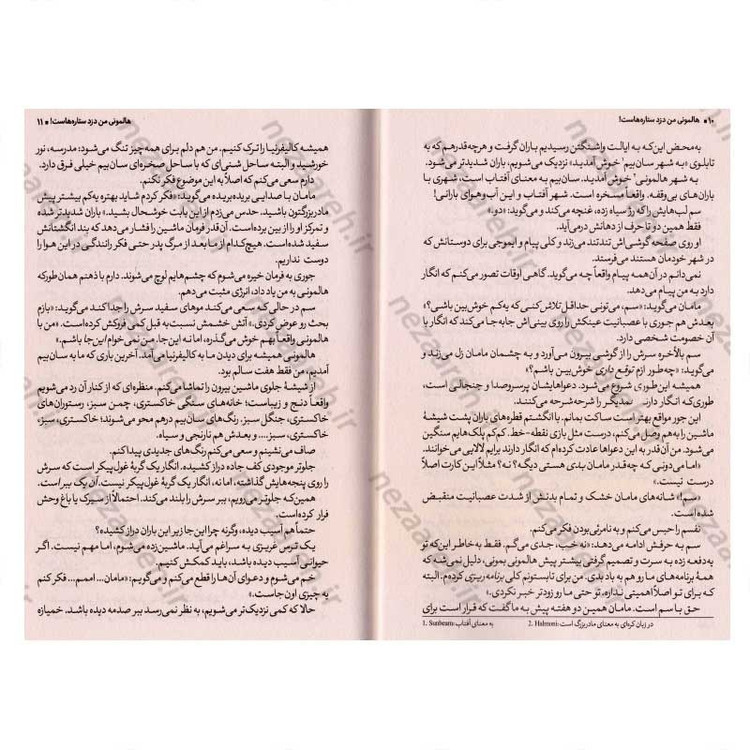 ۱۰ ■ هالمونی من دزد ستاره‌هاست!
به‌محض این‌که به ایالت واشنگتن رسیدیم باران گرفت و هرچه‌قدر هم که به
تابلوی «به شهر سان‌بیم¹ خوش آمدید» نزدیک می‌شویم، باران شدیدتر می‌شود.
به شهر هالمونی² خوش آمدید. سان‌بیم به معنای آفتاب است، شهری با
باران‌های بی‌وقفه. واقعاً مسخره است. شهر آفتاب و این آب‌وهوای بارانی!
سم لب‌هایش را که رژ سیاه زده، غنچه می‌کند و می‌گوید: «دو.»
فقط همین دو تا حرف از دهانش درمی‌آید.
او روی صفحه گوشی‌اش تندتند می‌زند و کلی پیام و ایموجی برای دوستانش که
در شهر خودمان هستند می‌فرستد.
نمی‌دانم در آن‌همه پیام واقعاً چه می‌گوید. گاهی اوقات تصور می‌کنم که انگار
دارد به من پیام می‌دهد.
مامان می‌گوید: «سم، می‌تونی حداقل تلاش کنی که یه‌کم خوش‌بین باشی؟»
بعدش هم جوری با عصبانیت عینکش را روی بینی‌اش جابه‌جا می‌کند که انگار با
آن خصومت شخصی دارد.
سم بالأخره سرش را از گوشی بیرون می‌آورد و به چشمان مامان زل می‌زند و
می‌گوید: «چه‌طور ازم توقع داری خوش‌بین باشم؟»
همیشه این‌طوری شروع می‌شود. دعواهایشان پرسروصدا و جنجالی است،
طوری‌که انگار دارند همدیگر را شرحه‌شرحه می‌کنند.
این جور مواقع بهتر است ساکت بمانم. با انگشتم قطره‌های باران پشت شیشهٔ
ماشین را به‌هم وصل می‌کنم، درست مثل بازی نقطه-خط. کم‌کم پلک‌هایم سنگین
می‌شود. من آن‌قدر به این دعواها عادت کرده‌ام که انگار دارند برایم لالایی می‌خوانند.
«اما می‌دونی که چه‌قدر مامان بدی هستی دیگه؟ نه؟ مثلاً این کارت اصلاً
درست نیست.»
«سم!» شانه‌های مامان خشک و تمام بدنش از شدت عصبانیت منقبض
شده است.
نفسم را حبس می‌کنم و به نامرئی‌بودن فکر می‌کنم.
سم به حرفش ادامه می‌دهد: «نه خب، جدی می‌گم. فقط به‌خاطر این‌که تو
یه‌دفعه زده به سرت و تصمیم گرفتی بیشتر پیش هالمونی بمونی، دلیل نمی‌شه که
همهٔ برنامه‌های ما رو هم به باد بدی. من برای تابستونم کلی برنامه ریزی کرده‌ام. البته
که برای تو اصلاً اهمیتی نداره، تو حتی ما رو زودتر خبر نکردی.»
حق با سم است. مامان همین دو هفته پیش به ما گفت که قرار است برای
1. Sunbeam: به معنای آفتاب
2. Halmoni: در زبان کره‌ای به معنای مادربزرگ است
هالمونی من دزد ستاره‌هاست! ■ ۱۱
همیشه کالیفرنیا را ترک کنیم. من هم دلم برای همه‌چیز تنگ می‌شود: مدرسه، نور
خورشید و البته ساحل شنی‌ای که با ساحل صخره‌ای سان‌بیم خیلی فرق دارد.
دارم سعی می‌کنم که اصلاً به این موضوع فکر نکنم.
مامان با صدایی بریده‌بریده می‌گوید: «فکر کردم شاید بهتره یه‌کم بیشتر پیش
مادربزرگتون باشید. حدس می‌زدم از این بابت خوشحال بشید.» باران شدیدتر شده
و تمرکز او را از بین برده‌است. آن‌قدر فرمان ماشین را فشار می‌دهد که بند انگشتانش
سفید شده است. هیچ‌کدام از ما بعد از مرگ پدر حتی فکر رانندگی در این هوا را
دوست نداریم.
جوری به فرمان خیره می‌شوم که چشم‌هایم لوچ می‌شوند. دارم با ذهنم همان‌طورکه
هالمونی به من یاد داد، انرژی مثبت می‌دهم.
سم در حالی که سعی می‌کند موهای سفید سرش را جدا کند می‌گوید: «بازم
بحث رو عوض کردی.» آتش خشمش نسبت‌به قبل کمی فروکش کرده‌است. «من با
هالمونی واقعاً بهم خوش می‌گذره، اما نه این‌جا. من نمی‌خوام این‌جا باشم.»
هالمونی همیشه برای دیدن ما به کالیفرنیا می‌آمد. آخرین باری که ما به سان‌بیم
آمدیم، من فقط هفت سالم بود.
از شیشهٔ جلوی ماشین بیرون را تماشا می‌کنم. منظره‌ای که از کنار آن رد می‌شویم
واقعاً دنج و زیباست؛ خانه‌های سنگی خاکستری، چمن سبز، رستوران‌های
خاکستری، جنگل سبز. رنگ‌های سان‌بیم درهم محو می‌شوند؛ خاکستری، سبز،
خاکستری، سبز.... و بعدش هم نارنجی و سیاه.
صاف می‌نشینم و سعی می‌کنم رنگ‌های جدیدی پیدا کنم.
جلوتر موجودی کف جاده دراز کشیده. انگار یک گربهٔ غول‌پیکر است که سرش
را روی پنجه‌هایش گذاشته، اما نه، انگار یک گربهٔ غول‌پیکر نیست. آن یک ببر است.
همین‌که جلوتر می‌رویم، ببر سرش را بلند می‌کند. احتمالاً از سیرک یا باغ وحش
فرار کرده‌است.
حتماً هم آسیب دیده، وگرنه چرا این‌جا زیر این باران دراز کشیده؟
یک ترس غریزی به سراغم می‌آید. ماشین‌زده می‌شوم، اما مهم نیست. اگر
حیوانی آسیب دیده باشد، باید کمکش کنیم.
خم می‌شوم و دعوای آن‌ها را قطع می‌کنم و می‌گویم: «مامان... اممم... فکر کنم
یه چیزی اون‌جاست.»
حالا که کمی نزدیک‌تر می‌شویم، به نظر نمی‌رسد ببر صدمه دیده باشد. خمیازه
nezaareh.ir